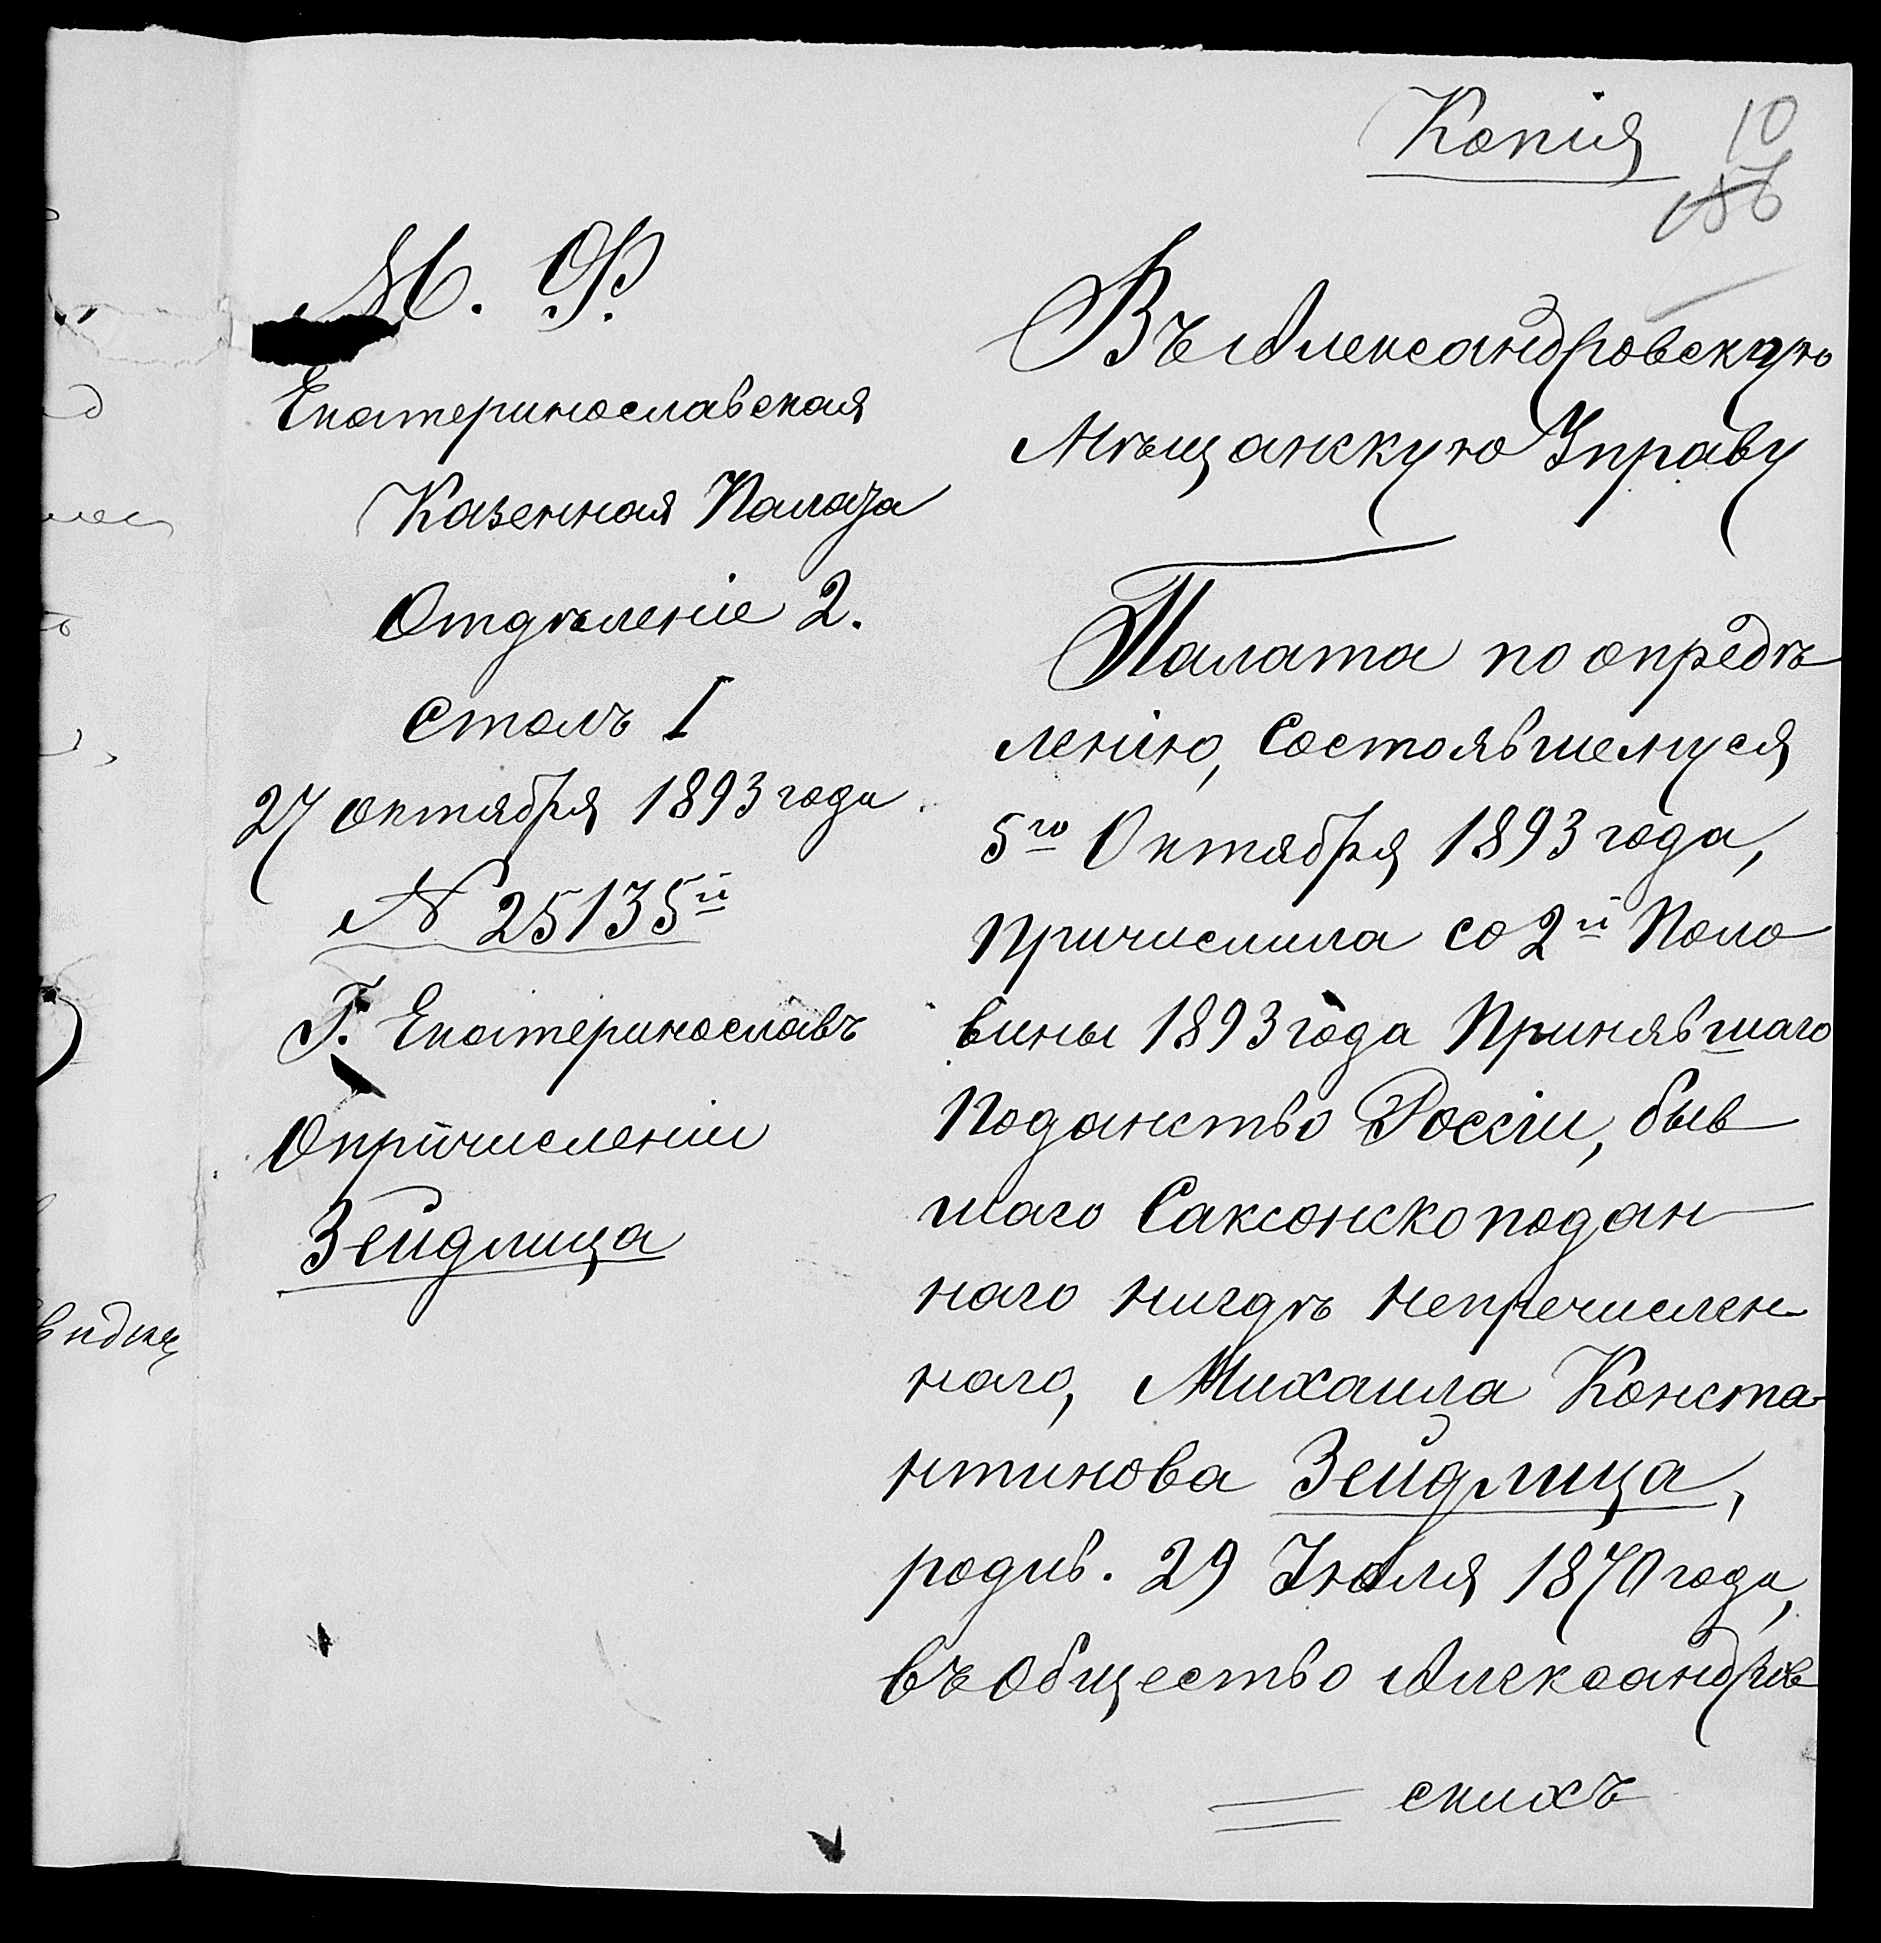 Копія
10
М. Ф.
Екатеринославская
Казенная Палата
Отдѣленіе 2.
Столъ I
27 Октября 1893 года
№ 25135й
Г. Екатеринославъ
О причисленіи
Зейдлица
Въ Александровскую
Мѣщанккую Управу
Палата по опредѣ
ленію, Состоявшемуся
5го Октября 1893 года,
Причислила со 2й Поло
вины 1893 года Принявшаго
Поданство Россіи, быв
шаго Саксонскоподан
наго нигдѣ непречислен
наго, Михаила Конста-
нтинова Зейдлица,
родив. 29 Іюля 1870 года,
въ Общество Александров
скихъ